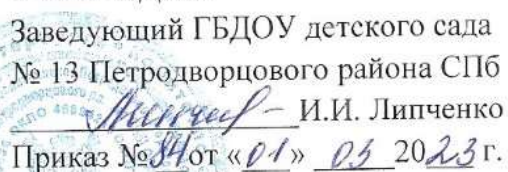 Заведующий ГБДОУ детского сада
№ 13 Петродворцового района СПб
И.И. Липченко
Приказ № 84 от «01» 03 2023 г.